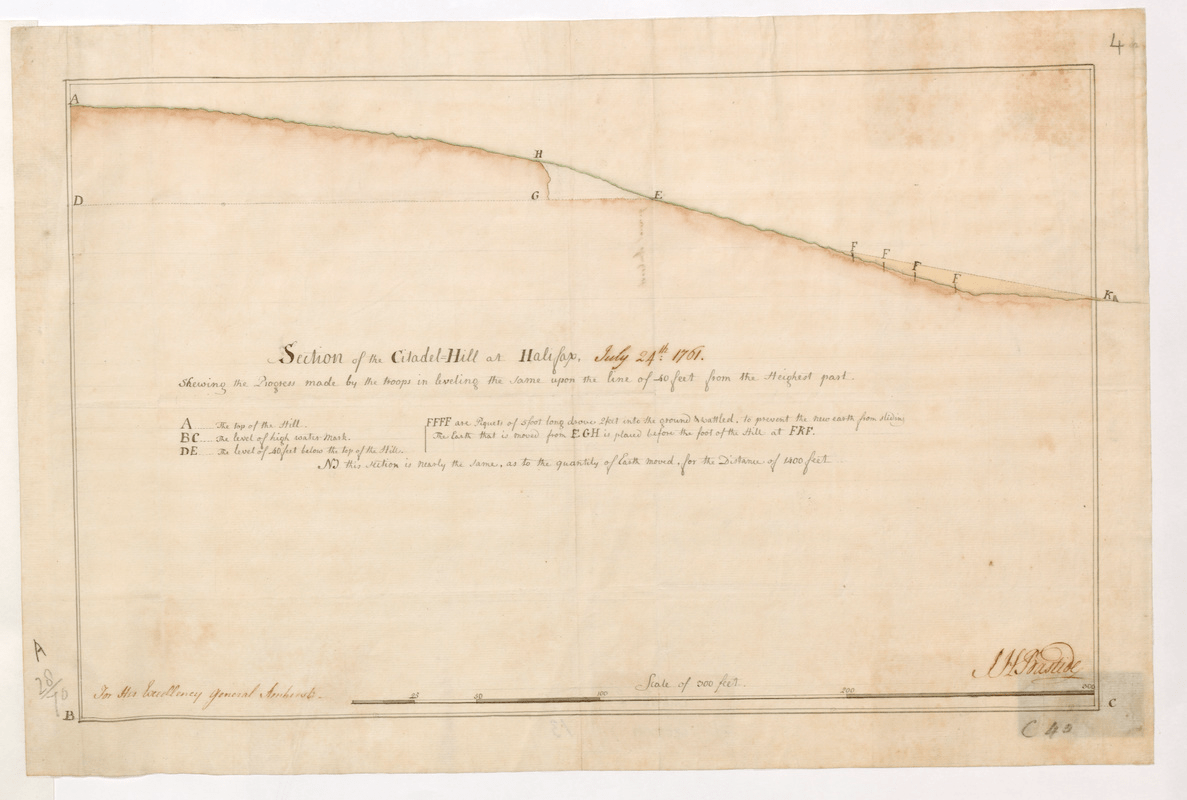 4
A
H
D
G
E
F
F
F
F
K
Section of the Citadel=Hill at Halifax. July 24th: 1761.
Shewing the Progress made by the troops in leveling the same upon the line of 40 feet from the Heighest part.
A The top of the Hill.
BC The level of high water Mark.
DE The level of 40 feet below the top of the Hill.
FFFF are Piquets of 5 foot long drove 2 feet into the ground & wattled, to prevent the new earth from sliding
The Earth that is moved from EGH is placed before the foot of the Hill at FKF.
NB this section is nearly the same, as to the quantity of Earth moved, for the Distance of 1400 feet
For His Excellency general Amherst.
Scale of 300 feet.
25 50 100 200 300
JH Bastide
A
28/70
B
C
C 40